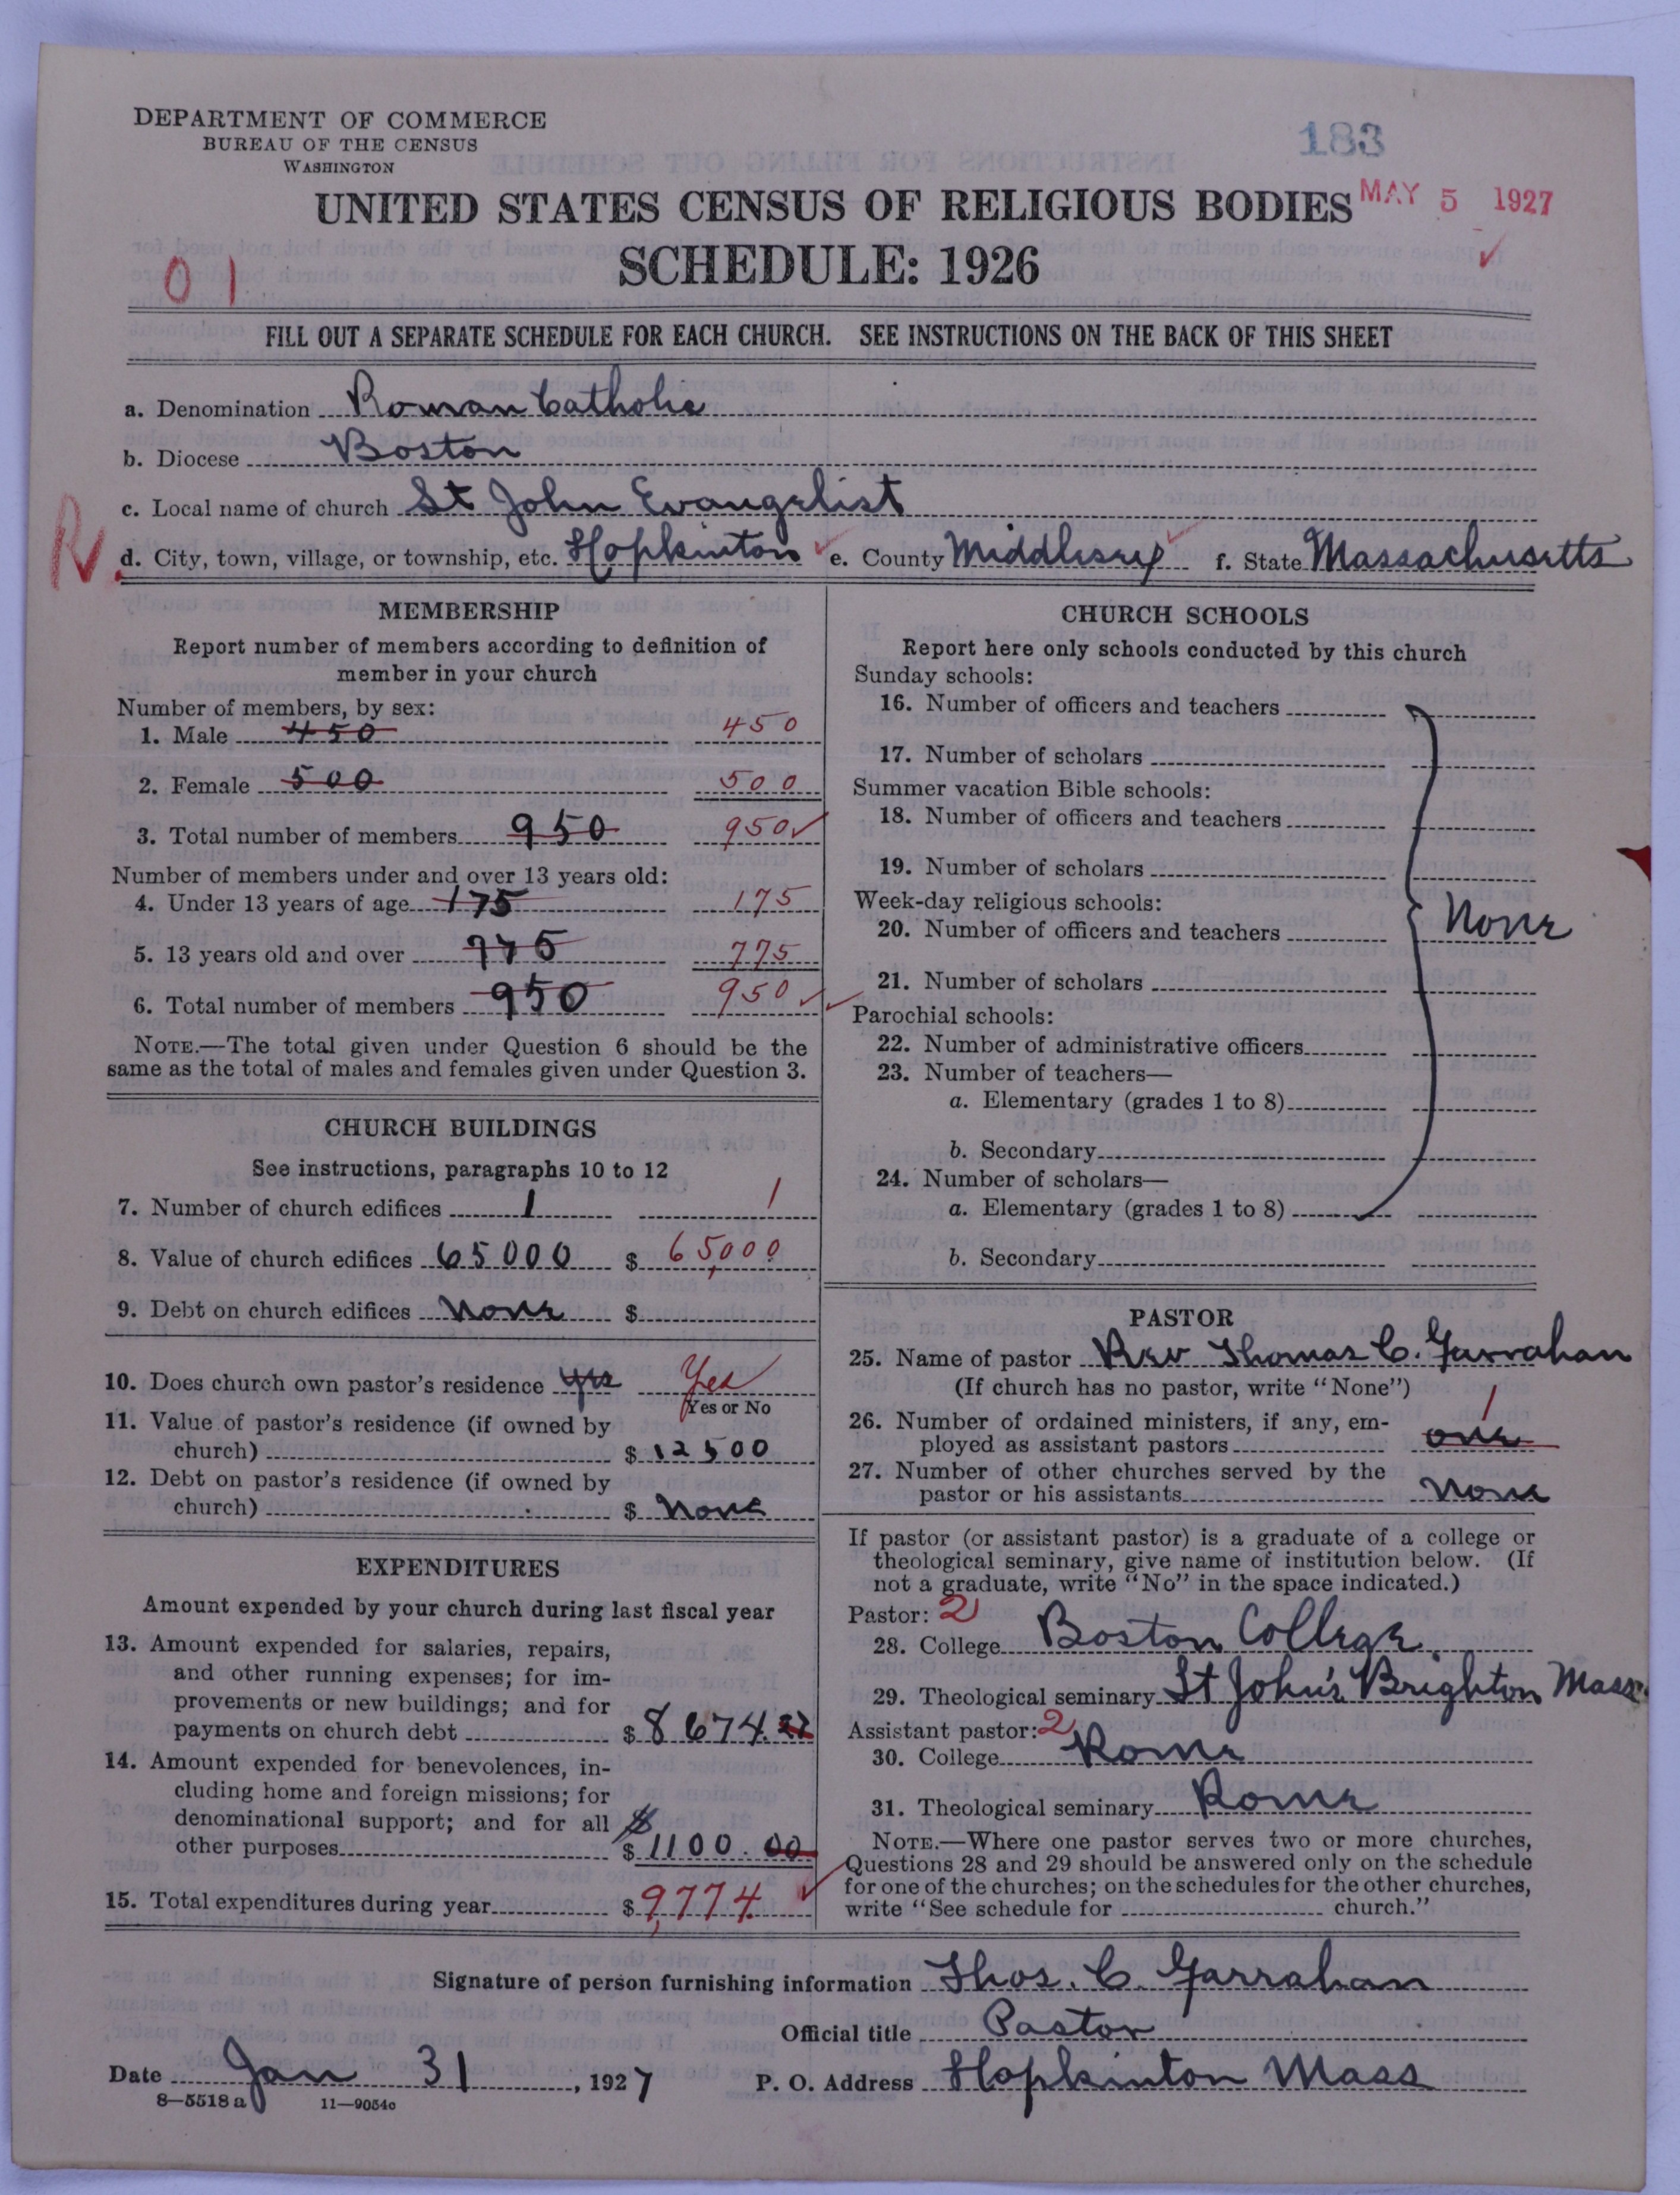 DEPARTMENT OF COMMERCE
BUREAU OF THE CENSUS
WASHINGTON
183
UNITED STATES CENSUS OF RELIGIOUS BODIES
MAY 5 1927
SCHEDULE: 1926
01
FILL OUT A SEPARATE SCHEDULE FOR EACH CHURCH. SEE INSTRUCTIONS ON THE BACK OF THIS SHEET
a. Denomination Roman Catholic
b. Diocese Boston
c. Local name of church St John Evangelist
R
d. City, town, village, or township, etc. Hopkinton e. County Middlesex f. State Massachusetts
MEMBERSHIP
Report number of members according to definition of
member in your church
Number of members, by sex:
1. Male 450 450
2. Female 500 500
3. Total number of members 950 950
Number of members under and over 13 years old:
4. Under 13 years of age 175 175
5. 13 years old and over 775 775
6. Total number of members 950 950
NOTE.—The total given under Question 6 should be the
same as the total of males and females given under Question 3.
CHURCH BUILDINGS
See instructions, paragraphs 10 to 12
7. Number of church edifices 1 1
8. Value of church edifices 65000 $ 65,000
9. Debt on church edifices None $
10. Does church own pastor's residence yes Yes
Yes or No
11. Value of pastor's residence (if owned by
church) $ 12500
12. Debt on pastor's residence (if owned by
church) $ None
EXPENDITURES
Amount expended by your church during last fiscal year
13. Amount expended for salaries, repairs,
and other running expenses; for im-
provements or new buildings; and for
payments on church debt $ 8674.22
14. Amount expended for benevolences, in-
cluding home and foreign missions; for
denominational support; and for all $
other purposes $ 1100.00
15. Total expenditures during year $ 9,774.
CHURCH SCHOOLS
Report here only schools conducted by this church
Sunday schools:
16. Number of officers and teachers
17. Number of scholars
Summer vacation Bible schools:
18. Number of officers and teachers
19. Number of scholars
Week-day religious schools:
20. Number of officers and teachers None
21. Number of scholars
Parochial schools:
22. Number of administrative officers
23. Number of teachers—
a. Elementary (grades 1 to 8)
b. Secondary
24. Number of scholars—
a. Elementary (grades 1 to 8)
b. Secondary
PASTOR
25. Name of pastor Rev Thomas C. Garrahan
(If church has no pastor, write "None")
26. Number of ordained ministers, if any, em- 1
ployed as assistant pastors one
27. Number of other churches served by the
pastor or his assistants None
If pastor (or assistant pastor) is a graduate of a college or
theological seminary, give name of institution below. (If
not a graduate, write "No" in the space indicated.)
Pastor: 2
28. College Boston College
29. Theological seminary St John's Brighton Mass.
Assistant pastor: 2
30. College Rome
31. Theological seminary Rome
NOTE.—Where one pastor serves two or more churches,
Questions 28 and 29 should be answered only on the schedule
for one of the churches; on the schedules for the other churches,
write "See schedule for church."
Signature of person furnishing information Thos. C. Garrahan
Official title Pastor
Date Jan 31, 1927 P. O. Address Hopkinton Mass
8—5518a 11—9054c